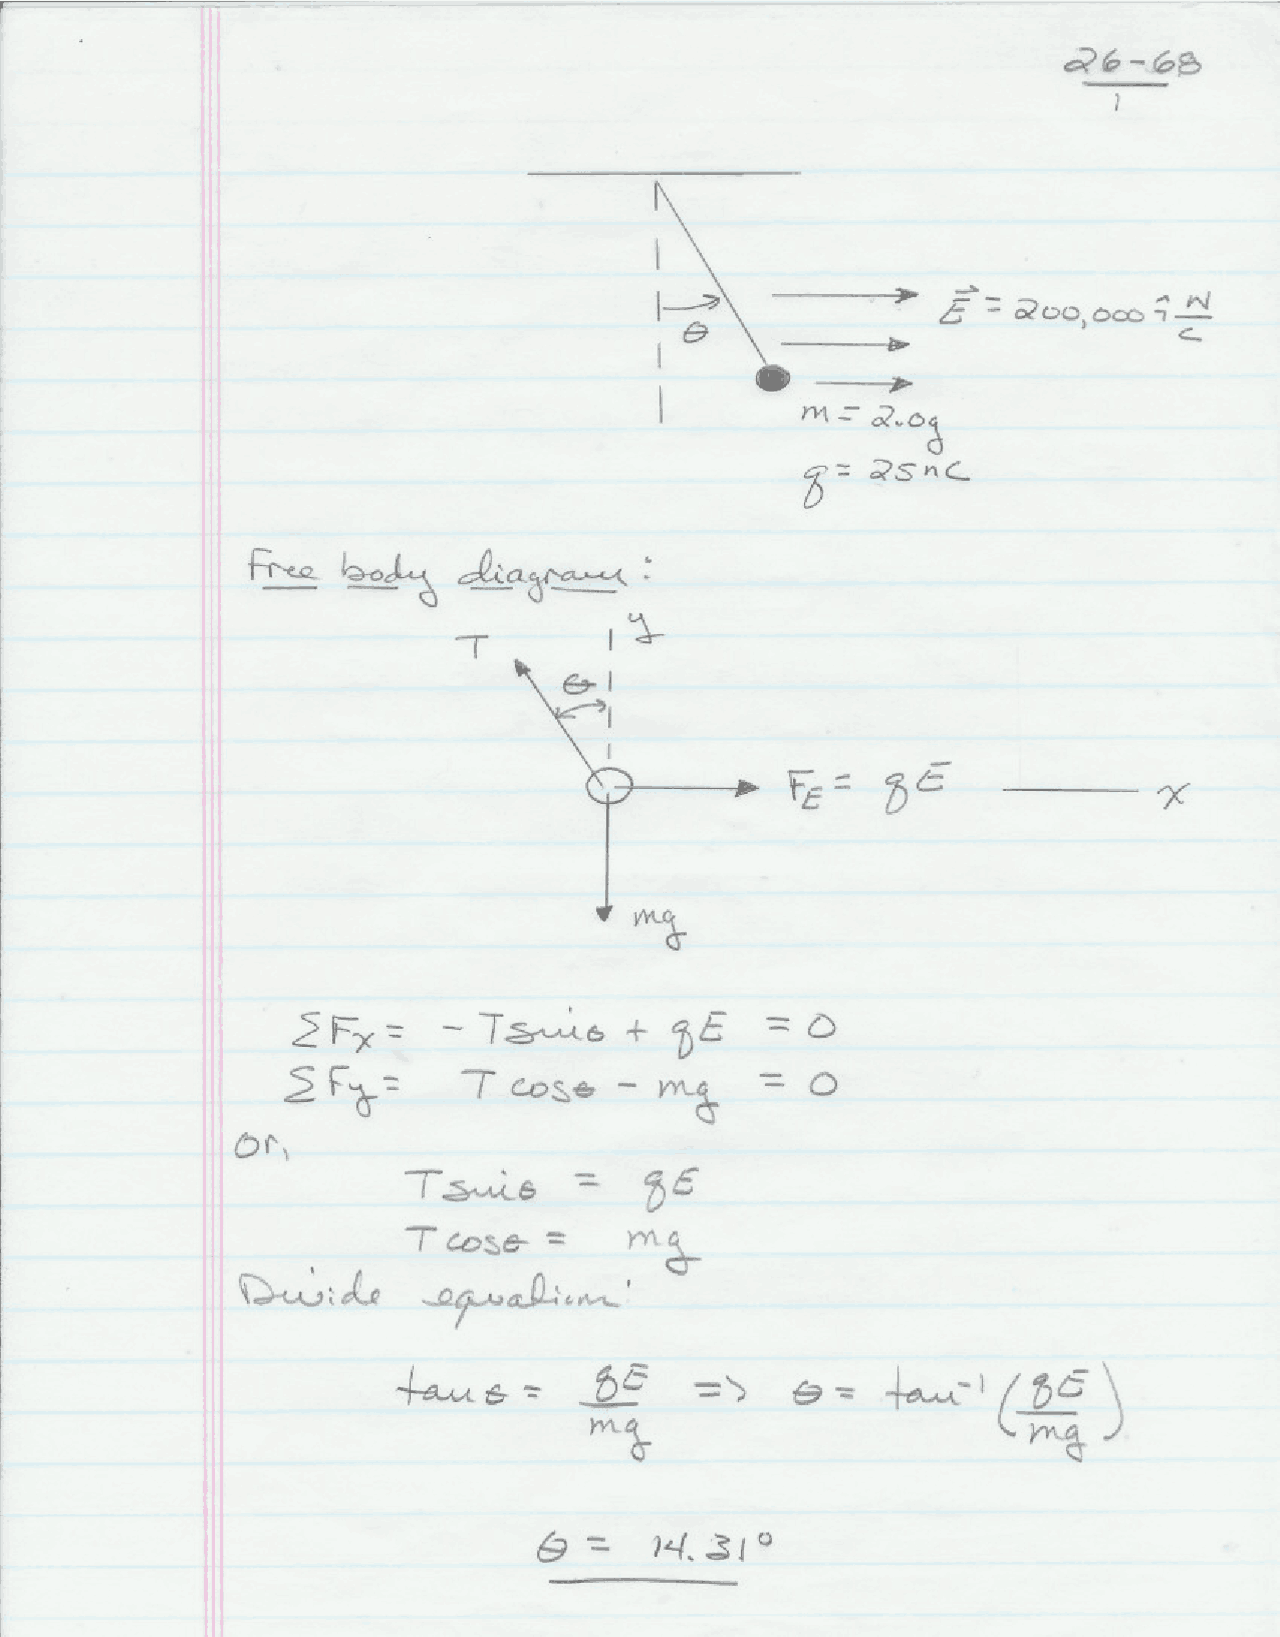 26-68
1
θ
E⃗ = 200,000 î N/C
m = 2.0g
q = 25nC
Free body diagram:
T
y
θ
F_E = qE
x
mg
ΣFx = - Tsinθ + qE = 0
ΣFy = Tcosθ - mg = 0
or,
Tsinθ = qE
Tcosθ = mg
Divide equation:
tanθ = qE/mg => θ = tan⁻¹ (qE/mg)
θ = 14.31°